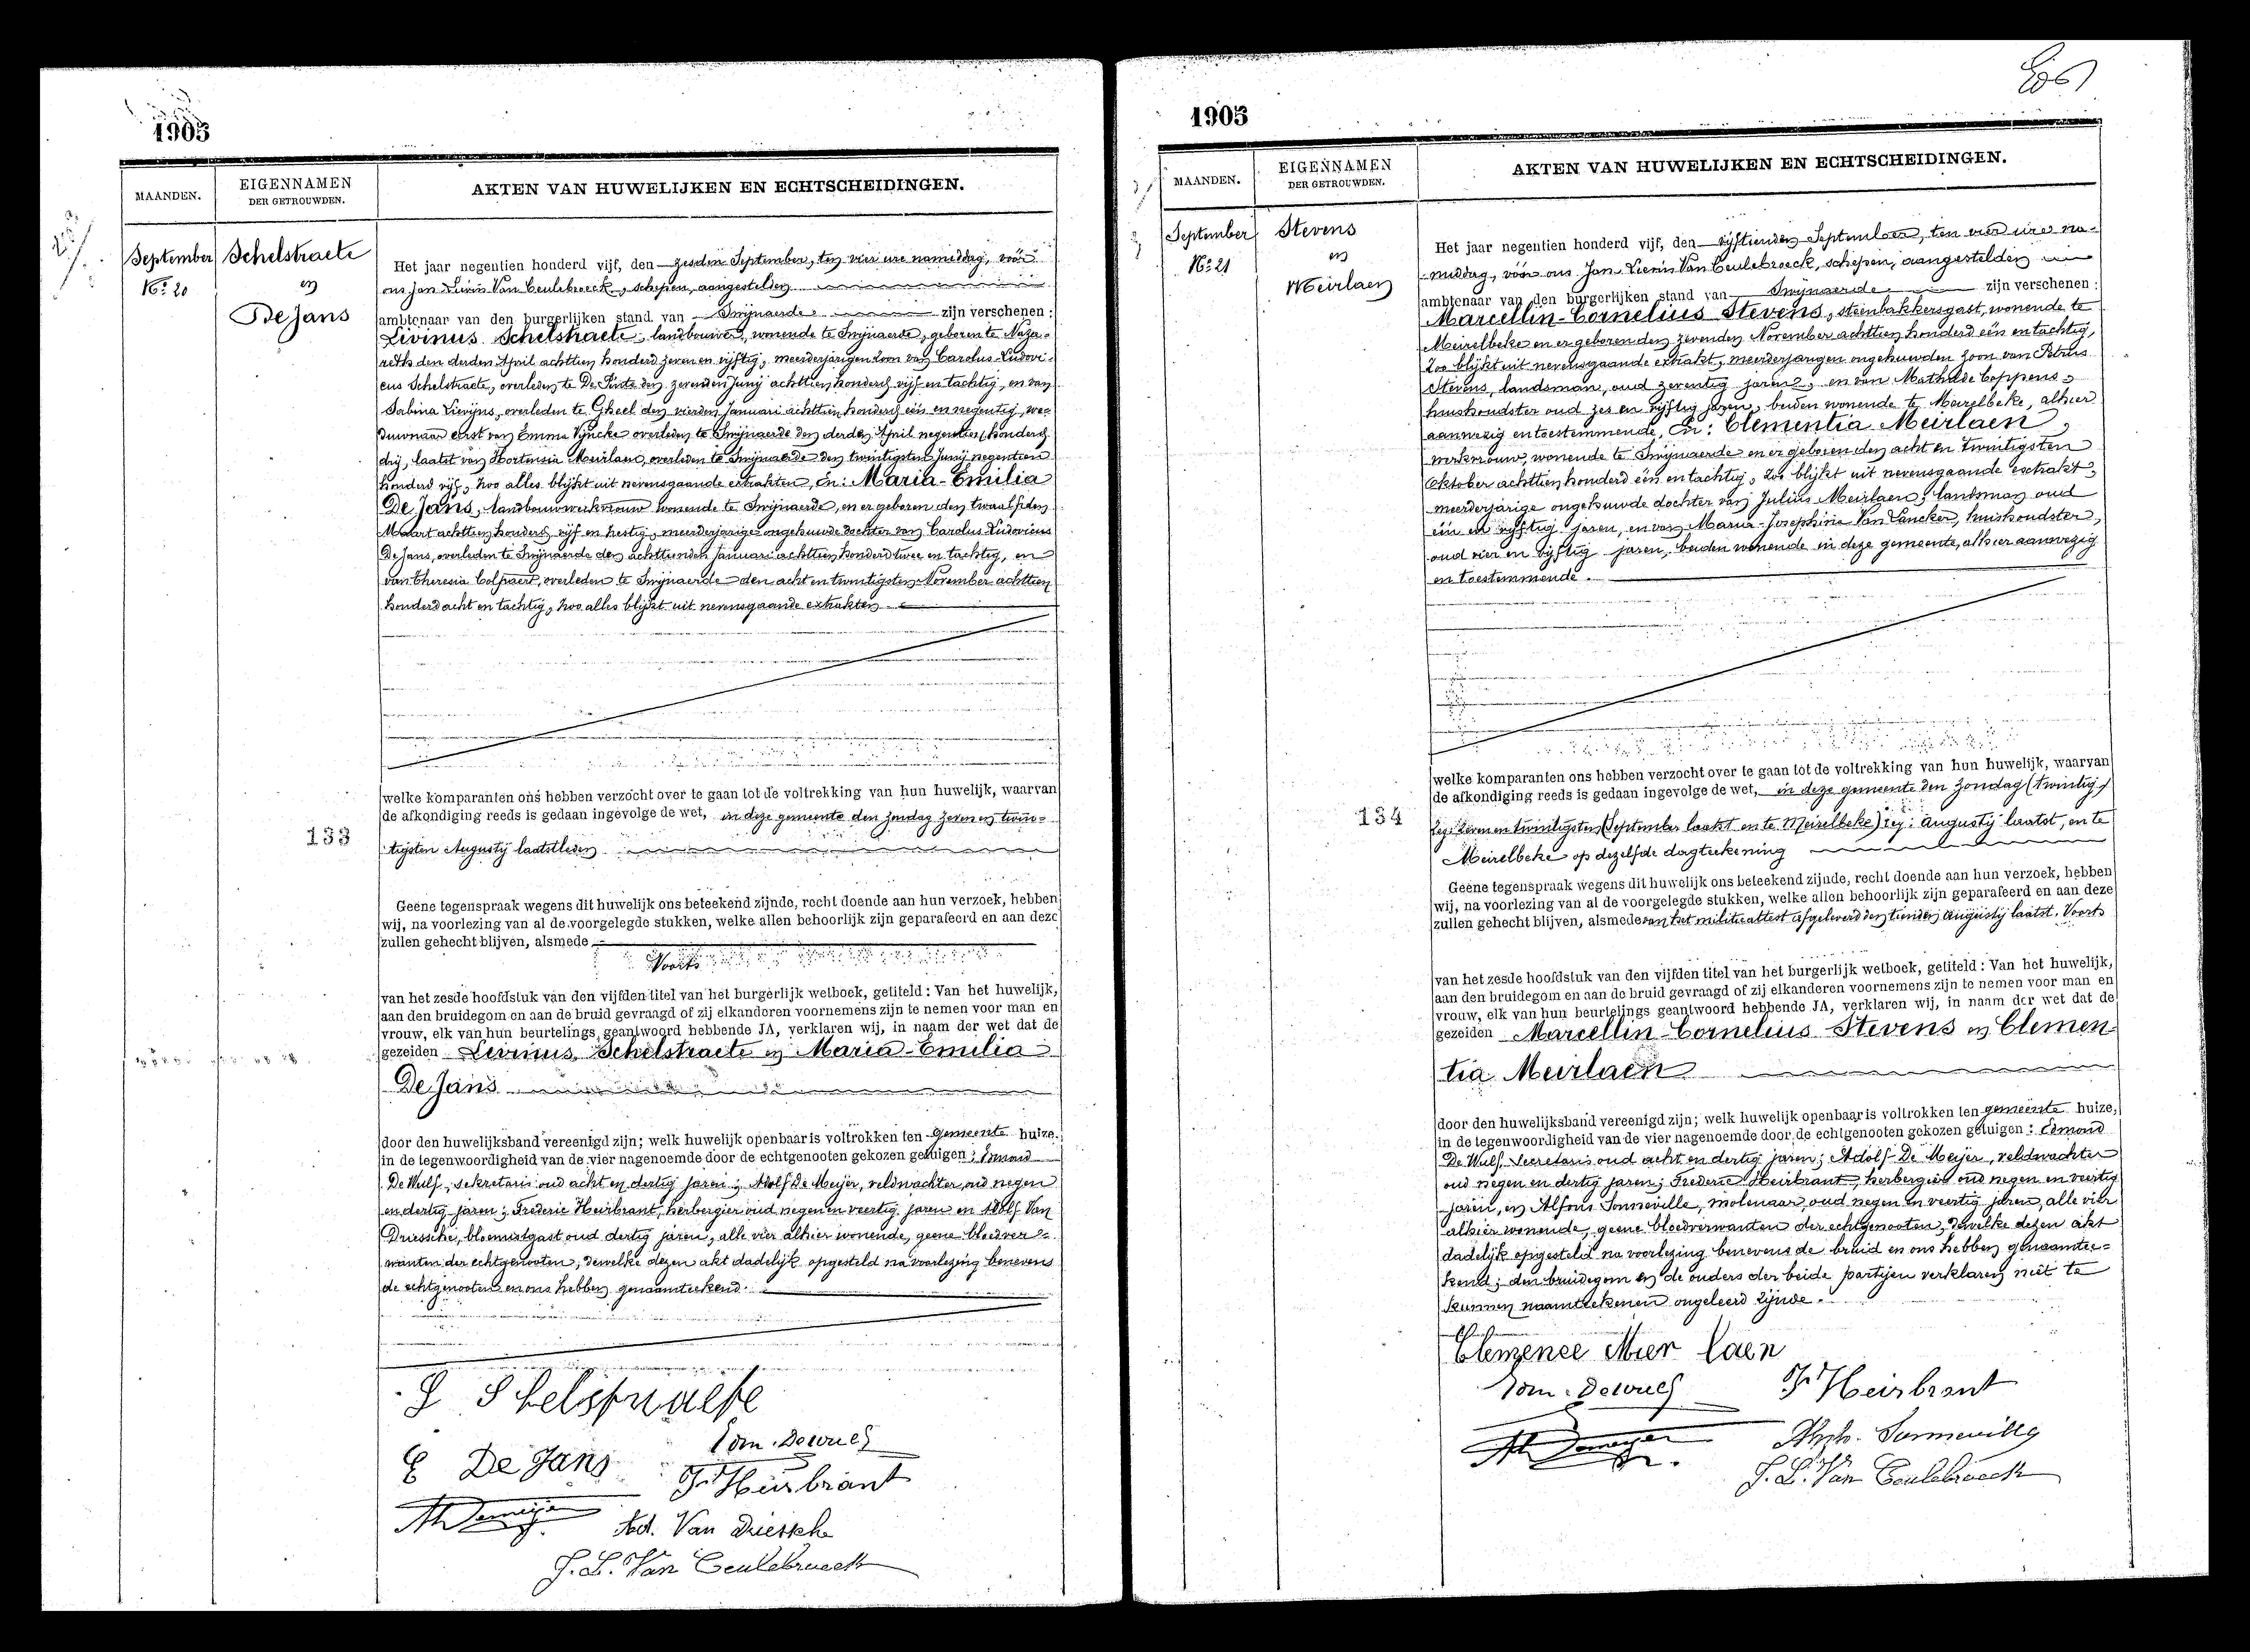 1905
MAANDEN.
EIGENNAMEN
DER GETROUWDEN.
AKTEN VAN HUWELIJKEN EN ECHTSCHEIDINGEN.
September
No: 20
Schelstraete
en
De Jans
Het jaar negentien honderd vijf, den zesden September, ten vier ure namiddag, vóór
ons Jan Livin Van Ceulebroeck, schepen, aangestelden
ambtenaar van den burgerlijken stand van Swijnaerde zijn verschenen:
Livinus Schelstraete, landbouwer, wonende te Swijnaerde, geboren te Naza=
reth den derden April achttien honderd zeven en vijftig, meerderjarigen zoon van Carolus-Ludovi=
cus Schelstraete, overleden te De Pinte den zevenden Junij achttien honderd vijf en tachtig, en van
Sabina Lievijns, overleden te Gheel den vierden Januari achttien honderd één en negentig, we=
duwnaar eerst van Emma Vijncke overleden te Swijnaerde den derden April negentien honderd
drij, laatst van Hortensia Meirlaen, overleden te Swijnaerde den twintigsten Junij negentien
honderd vijf, zoo alles blijkt uit nevensgaande extrakten, En: Maria-Emilia
De Jans, landbouwwerkvrouw wonende te Swijnaerde, en er geboren den twaalfden
Maart achttien honderd vijf en zestig, meerderjarige ongehuwde dochter van Carolus Ludovicus
De Jans, overleden te Swijnaerde den achttienden Januari achttien honderd twee en tachtig, en
van Theresia Colpaert, overleden te Swijnaerde den acht en twintigsten November achttien
honderd acht en tachtig, zoo alles blijkt uit nevensgaande extrakten.
welke komparanten ons hebben verzocht over te gaan tot de voltrekking van hun huwelijk, waarvan
de afkondiging reeds is gedaan ingevolge de wet, in deze gemeente den zondag zeven en twin=
133
tigsten Augustij laatstleden
Geene tegenspraak wegens dit huwelijk ons beteekend zijnde, recht doende aan hun verzoek, hebben
wij, na voorlezing van al de voorgelegde stukken, welke allen behoorlijk zijn geparafeerd en aan deze
zullen gehecht blijven, alsmede
Voorts
van het zesde hoofdstuk van den vijfden titel van het burgerlijk wetboek, getiteld: Van het huwelijk,
aan den bruidegom en aan de bruid gevraagd of zij elkanderen voornemens zijn te nemen voor man en
vrouw, elk van hun beurtelings geantwoord hebbende JA, verklaren wij, in naam der wet dat de
gezeiden Livinus Schelstraete en Maria-Emilia
De Jans
door den huwelijksband vereenigd zijn; welk huwelijk openbaar is voltrokken ten gemeente huize,
in de tegenwoordigheid van de vier nagenoemde door de echtgenooten gekozen getuigen: Edmond
De Wulf, sekretaris oud acht en dertig jaren; Adolf De Meijer, veldwachter oud negen
en dertig jaren; Frederic Heirbrant, herbergier oud negen en veertig jaren en Adolf Van
Driessche, bloemistgast oud dertig jaren, alle vier alhier wonende, geene bloedver=
wanten der echtgenooten, dewelke dezen akt dadelijk opgesteld na voorlezing benevens
de echtgenooten en ons hebben genaamteekend.
L Schelstraete
E De Jans
Edm. Dewulf
F. Heirbrant
Ad Demeijer
Ad. Van Driessche
J. L. Van Ceulebroeck
1905
MAANDEN.
EIGENNAMEN
DER GETROUWDEN.
AKTEN VAN HUWELIJKEN EN ECHTSCHEIDINGEN.
September
No: 21
Stevens
en
Meirlaen
Het jaar negentien honderd vijf, den vijftienden September, ten vier ure na=
middag, vóór ons Jan Livin Van Ceulebroeck, schepen, aangestelden
ambtenaar van den burgerlijken stand van Swijnaerde zijn verschenen:
Marcellin-Cornelius Stevens, steenbakkersgast, wonende te
Meirelbeke en er geboren den zevenden November achttien honderd één en tachtig,
zoo blijkt uit nevensgaande extrakt, meerderjarigen ongehuwden zoon van Petrus
Stevens, landsman, oud zeventig jaren, en van Mathilde Coppens,
huishoudster oud zes en vijftig jaren, beiden wonende te Meirelbeke, alhier
aanwezig en toestemmende, En: Clementia Meirlaen,
werkvrouw, wonende te Swijnaerde en er geboren den acht en twintigsten
Oktober achttien honderd één en tachtig, zoo blijkt uit nevensgaande extrakt,
meerderjarige ongehuwde dochter van Julius Meirlaen, landsman oud
één en vijftig jaren, en van Maria-Josephina Van Vancker, huishoudster,
oud vier en vijftig jaren, beiden wonende in deze gemeente, alhier aanwezig
en toestemmende.
welke komparanten ons hebben verzocht over te gaan tot de voltrekking van hun huwelijk, waarvan
de afkondiging reeds is gedaan ingevolge de wet, in deze gemeente den zondag (twintig)
134
zeg: zeven en twintigsten (September laatst en te Meirelbeke) zeg: Augustij laatst, en te
Meirelbeke op dezelfde dagteekening
Geene tegenspraak wegens dit huwelijk ons beteekend zijnde, recht doende aan hun verzoek, hebben
wij, na voorlezing van al de voorgelegde stukken, welke allen behoorlijk zijn geparafeerd en aan deze
zullen gehecht blijven, alsmede van het militieattest afgeleverd den tienden Augustij laatst. Voorts
van het zesde hoofdstuk van den vijfden titel van het burgerlijk wetboek, getiteld: Van het huwelijk,
aan den bruidegom en aan de bruid gevraagd of zij elkanderen voornemens zijn te nemen voor man en
vrouw, elk van hun beurtelings geantwoord hebbende JA, verklaren wij, in naam der wet dat de
gezeiden Marcellin-Cornelius Stevens en Clemen
tia Meirlaen
door den huwelijksband vereenigd zijn; welk huwelijk openbaar is voltrokken ten gemeente huize,
in de tegenwoordigheid van de vier nagenoemde door de echtgenooten gekozen getuigen: Edmond
De Wulf, Secretaris oud acht en dertig jaren; Adolf De Meijer, veldwachter
oud negen en dertig jaren; Frederic Heirbrant, herbergier oud negen en veertig
jaren, en Alfons Sonneville, molenaar, oud negen en veertig jaren, alle vier
alhier wonende, geene bloedverwanten der echtgenooten, dewelke dezen akt
dadelijk opgesteld na voorlezing benevens de bruid en ons hebben genaamtee=
kend; den bruidegom en de ouders der beide partijen verklaren niet te
kunnen naamteekenen ongeleerd zijnde.
Clemence Mier laen
Edm. Dewulf
F. Heirbrant
Ad Demeijer
Alph. Sonneville
J. L. Van Ceulebroeck